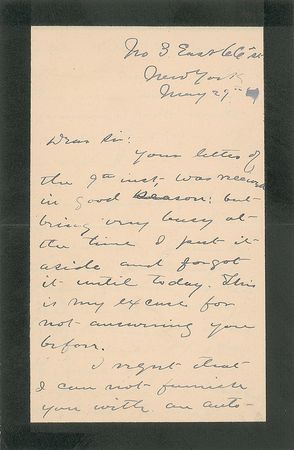 No 3 East 66th st
New York
May 29th
Dear Sir:
Your letter of
the 9th inst. was received
in good season: but
being very busy at
the time I put it
aside and forgot
it until today. This
is my excuse for
not answering you
before.
I regret that
I can not furnish
you with an auto-